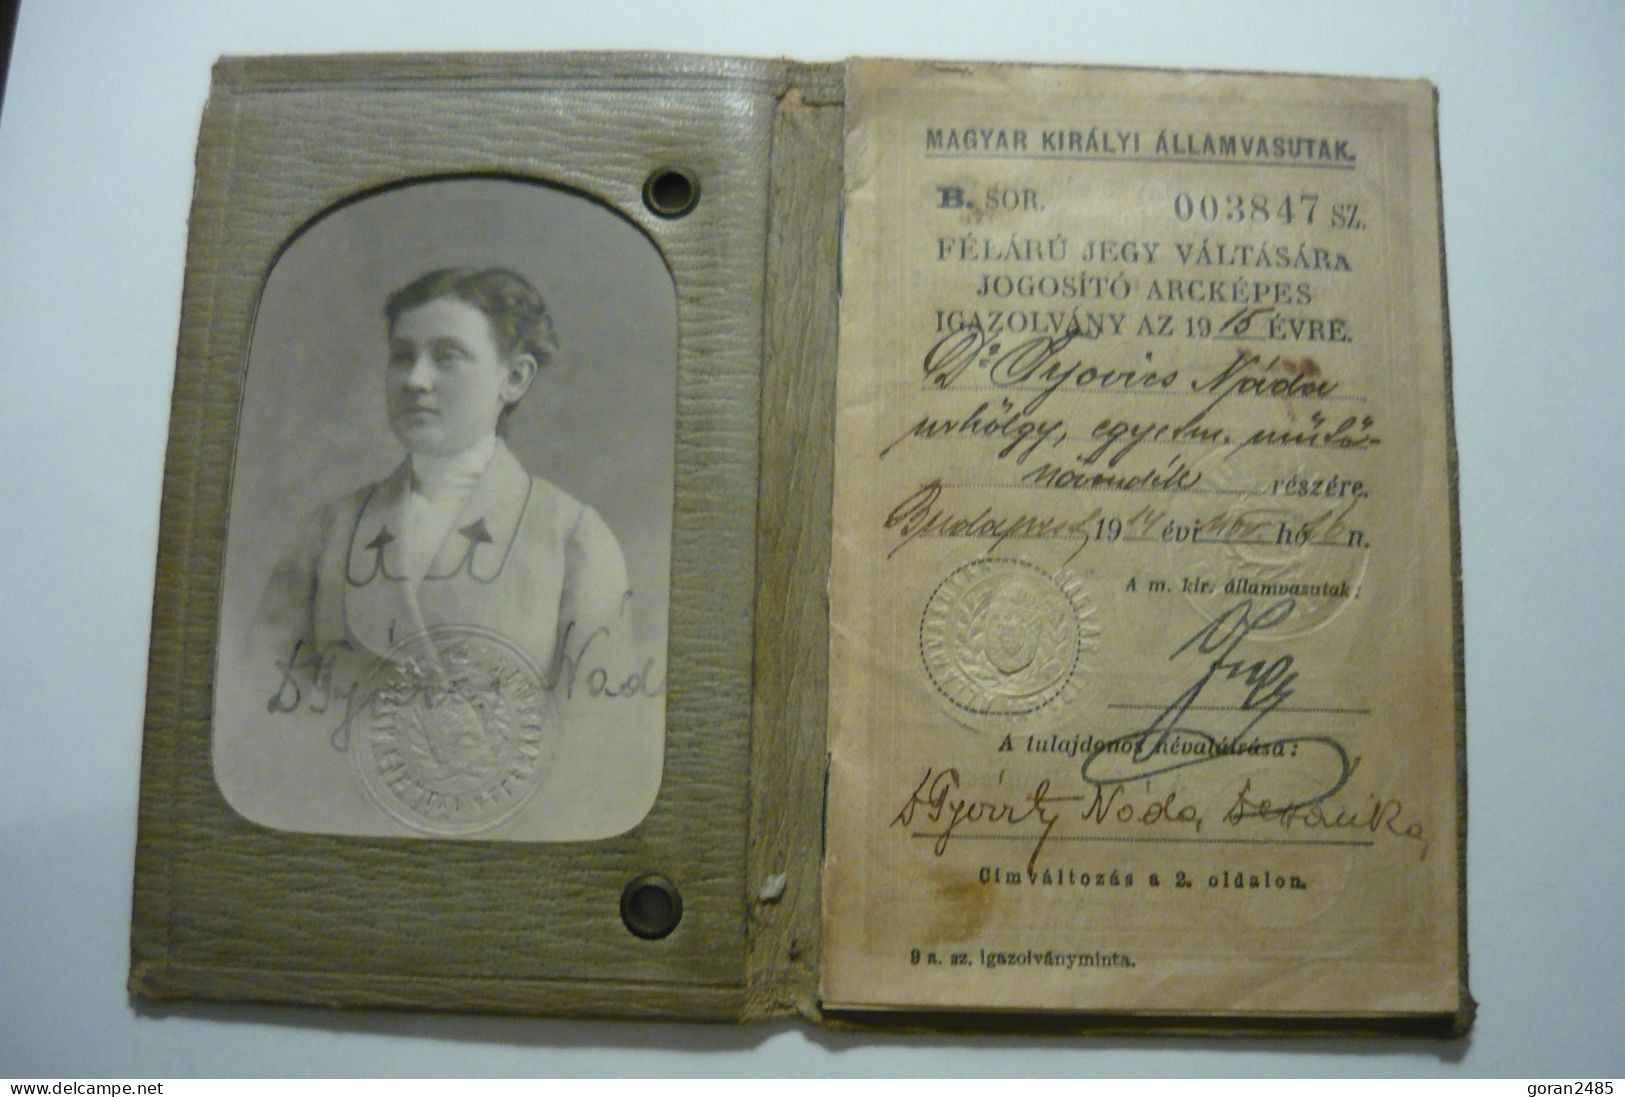 MAGYAR KIRÁLYI ÁLLAMVASUTAK.
B. SOR. 003847 SZ.
FÉLÁRÚ JEGY VÁLTÁSÁRA
JOGOSÍTÓ ARCKÉPES
IGAZOLVÁNY AZ 1915 ÉVRE.
Dr Náda
urhölgy, egyetm. műtő-
növendék részére.
Budapest, 1914 évi nov. hó 16 n.
A m. kir. államvasutak:
A tulajdonos névaláírása:
Dr Náda,
Címváltozás a 2. oldalon.
9 a. sz. igazolványminta.
Dr Nád
goran2485